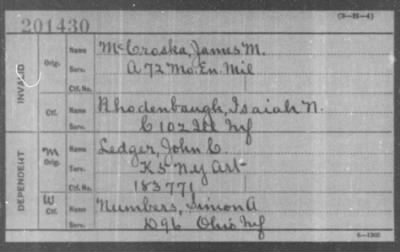 (3-25-4)
201430
INVALID
Orig. Name McCroska, James M.
Serv. A 72 Mo. En. Mil
Ctf. No.
Ctf. Name Rhodenbaugh, Isaiah N.
Serv. C 102 Ill Inf
DEPENDENT
M Orig. Name Ledger, John C.
Serv. K 5 N.Y. Art
Ctf. No. 183771
W Ctf. Name Numbers, Simon A
D 96 Ohio Inf
6-1302